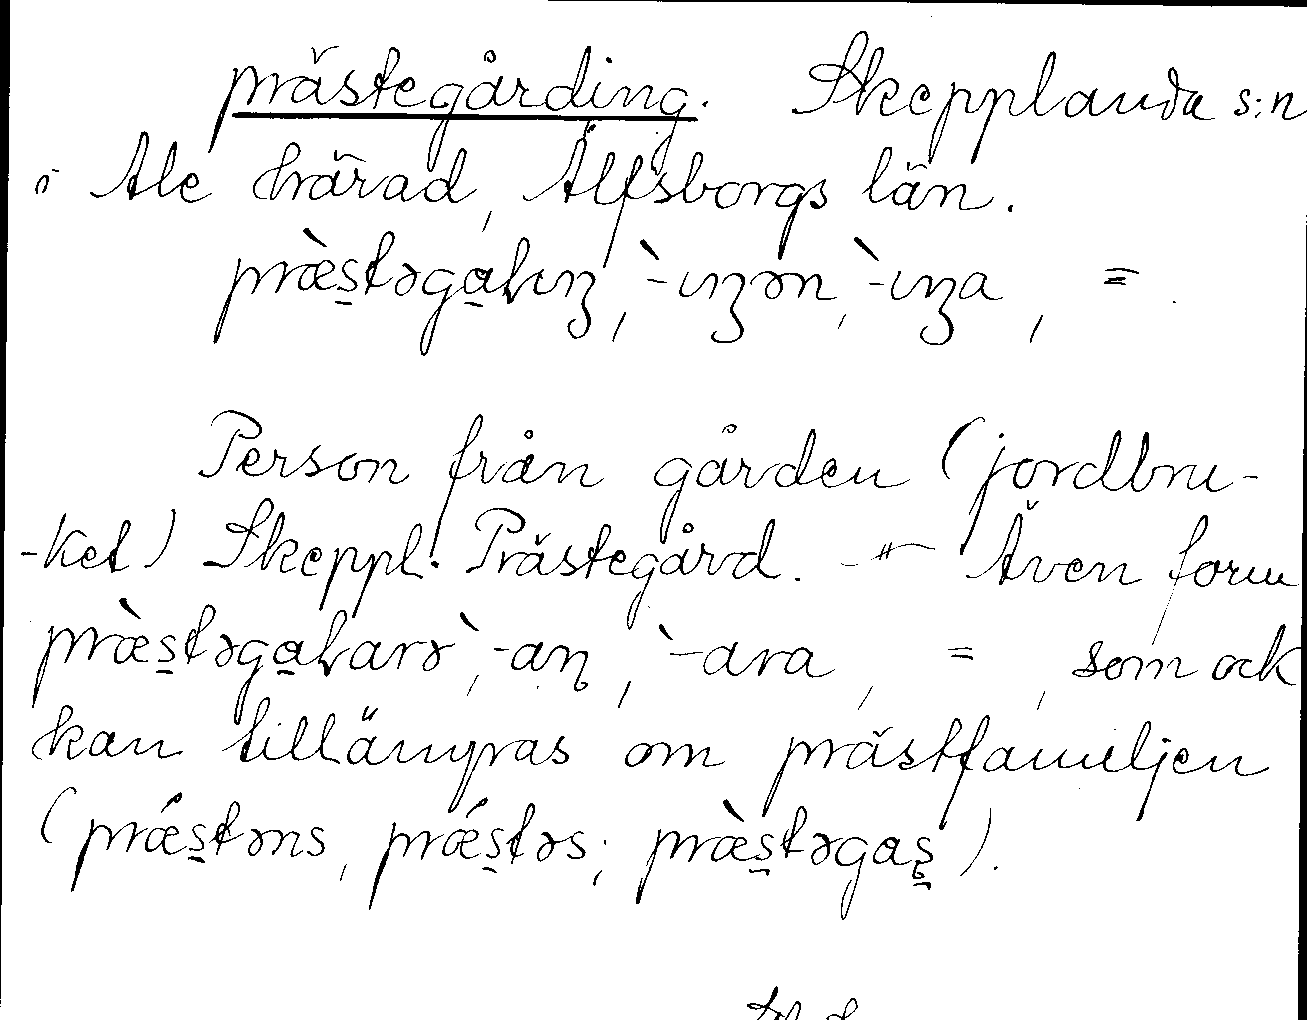 prästegårding. Skepplanda s:n
i Ale härad, Älfsborgs län.
præ̀s̱təga̱ƚıŋ, `-ıŋən, `-ıŋa, =
Person från gården (jordbru-
-ket) Skeppl. Prästegård. - Även form
præ̀s̱təga̱ƚarə, `-aɳ, `-ara, =, som ock
kan tillämpas om prästfamiljen
(prǽs̱təns, prǽs̱təs; præ̀s̱təgaş).